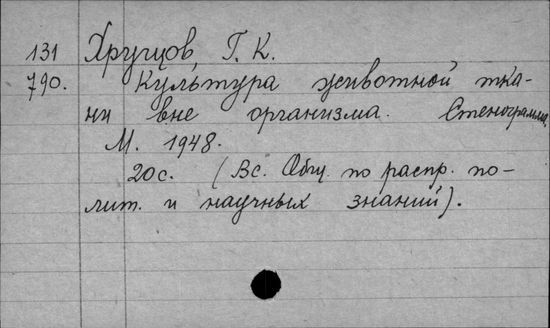 131 Хрущов, Г. К.
790. Культура животной тка-
ни вне организма. Стенограмма.
М. 1948.
20 с. (Вс. Общ. по распр. по-
лит. и научных знаний).